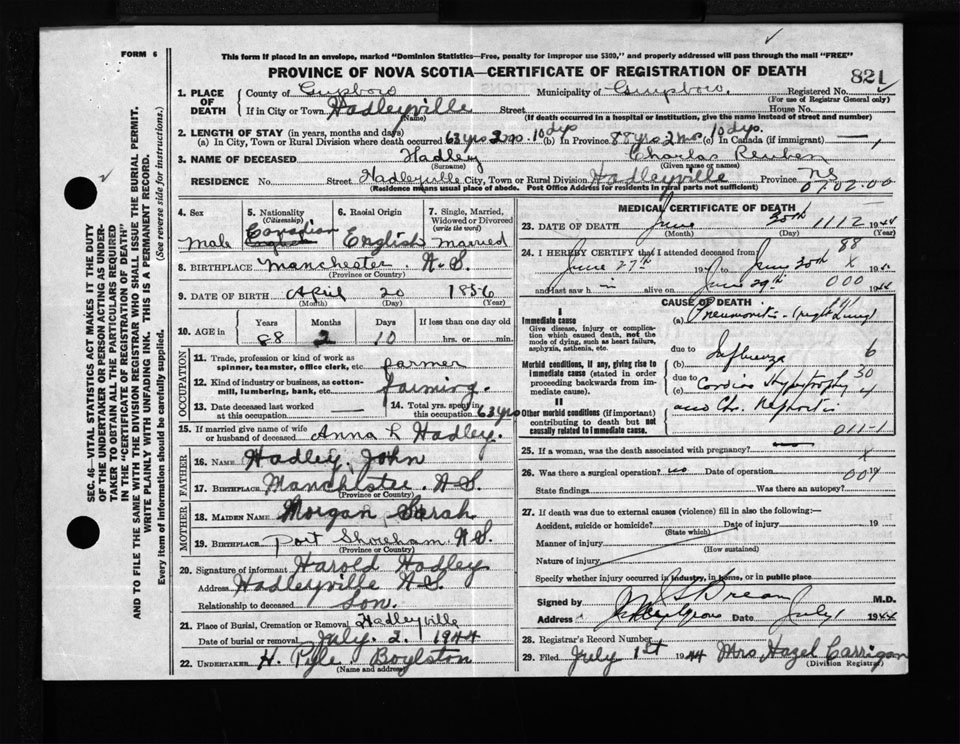 FORM 6
This form if placed in an envelope, marked "Dominion Statistics—Free, penalty for improper use $300," and properly addressed will pass through the mail "FREE"
PROVINCE OF NOVA SCOTIA—CERTIFICATE OF REGISTRATION OF DEATH
821
1. PLACE OF DEATH County of Guysboro Municipality of Guysboro. Registered No.
(For use of Registrar General only)
If in City or Town Hadleyville Street House No.
(Name) (If death occurred in a hospital or institution, give its name instead of street and number)
2. LENGTH OF STAY (in years, months and days)
(a) In City, Town or Rural Division where death occurred 63 yrs 2 mo. 10 dys (b) In Province 88 yrs 2 mo. 10 dys. (c) In Canada (if immigrant) —
3. NAME OF DECEASED Hadley Charles Reuben
(Surname) (Given name or names)
RESIDENCE No. Street Hadleyville City, Town or Rural Division Hadleyville Province NS
(Residence means usual place of abode. Post Office Address for residents in rural parts not sufficient)
07.02.00
4. Sex Male
5. Nationality (Citizenship) Canadian
6. Racial Origin English
7. Single, Married, Widowed or Divorced (write the word) married
8. BIRTHPLACE Manchester. N.S.
(Province or Country)
9. DATE OF BIRTH April 20 1856
(Month) (Day) (Year)
10. AGE in Years Months Days If less than one day old
88 2 10 hrs. or min.
OCCUPATION
11. Trade, profession or kind of work as spinner, teamster, office clerk, etc. farmer
12. Kind of industry or business, as cotton-mill, lumbering, bank, etc. farming.
13. Date deceased last worked at this occupation — 14. Total yrs. spent in this occupation 63 yrs
15. If married give name of wife or husband of deceased Anna L Hadley.
FATHER
16. NAME Hadley, John
17. BIRTHPLACE Manchester. N.S.
(Province or Country)
MOTHER
18. MAIDEN NAME Morgan, Sarah
19. BIRTHPLACE Port Shoreham N.S.
(Province or Country)
20. Signature of informant Harold Hadley
Address Hadleyville N.S.
Relationship to deceased Son.
21. Place of Burial, Cremation or Removal Hadleyville
Date of burial or removal July. 2. 1944
22. UNDERTAKER H. Pyle. Boylston
(Name and address)
MEDICAL CERTIFICATE OF DEATH
23. DATE OF DEATH June 30th 1112 1944
(Month) (Day) (Year)
88
24. I HEREBY CERTIFY that I attended deceased from
June 27th 194 to June 30th X 194
and last saw h alive on June 29th 000 1944
CAUSE OF DEATH
I
Immediate cause
Give disease, injury or complication which caused death, not the mode of dying, such as heart failure, asphyxia, asthenia, etc.
(a) Pneumonitis - (right lung)
due to
Morbid conditions, if any, giving rise to immediate cause (stated in order proceeding backwards from immediate cause).
(b) Influenza 6
due to 30
(c) Cardiac Hypertrophy
II
Other morbid conditions (if important) contributing to death but not causally related to immediate cause.
and Chr. Nephritis
011-1
25. If a woman, was the death associated with pregnancy?
X
26. Was there a surgical operation? no Date of operation 009 19
State findings Was there an autopsy?
27. If death was due to external causes (violence) fill in also the following:—
Accident, suicide or homicide? Date of injury 19
(State which)
Manner of injury
(How sustained)
Nature of injury
Specify whether injury occurred in industry, in home, or in public place
Signed by M.D.
Address Date July 1944
28. Registrar's Record Number
29. Filed July 1st 1944 Mrs Hazel Carrigan
(Division Registrar)
SEC. 46—VITAL STATISTICS ACT MAKES IT THE DUTY OF THE UNDERTAKER OR PERSON ACTING AS UNDERTAKER TO OBTAIN ALL THE PARTICULARS REQUIRED IN THE "CERTIFICATE OF REGISTRATION OF DEATH" AND TO FILE THE SAME WITH THE DIVISION REGISTRAR WHO SHALL ISSUE THE BURIAL PERMIT.
WRITE PLAINLY WITH UNFADING INK. THIS IS A PERMANENT RECORD.
Every item of information should be carefully supplied. (See reverse side for instructions.)